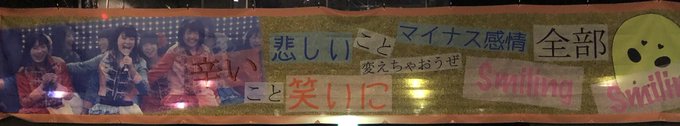 辛い
こと
悲しい
こと
マイナス感情
全部
変えちゃおうぜ
笑いに
Smiling
Smiling